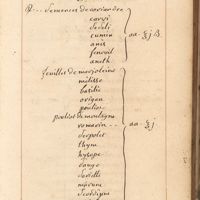 ℞ -- semences de coriandre
carvi
seseli
cumin
anis
fenouil
aneth
aa ℥j ß.
feuilles de marjolaine
mélisse
basilic
origan
pouliot
pouliot de montagne
romarin --
serpolet
thym
hysope
sauge
aa ℥j